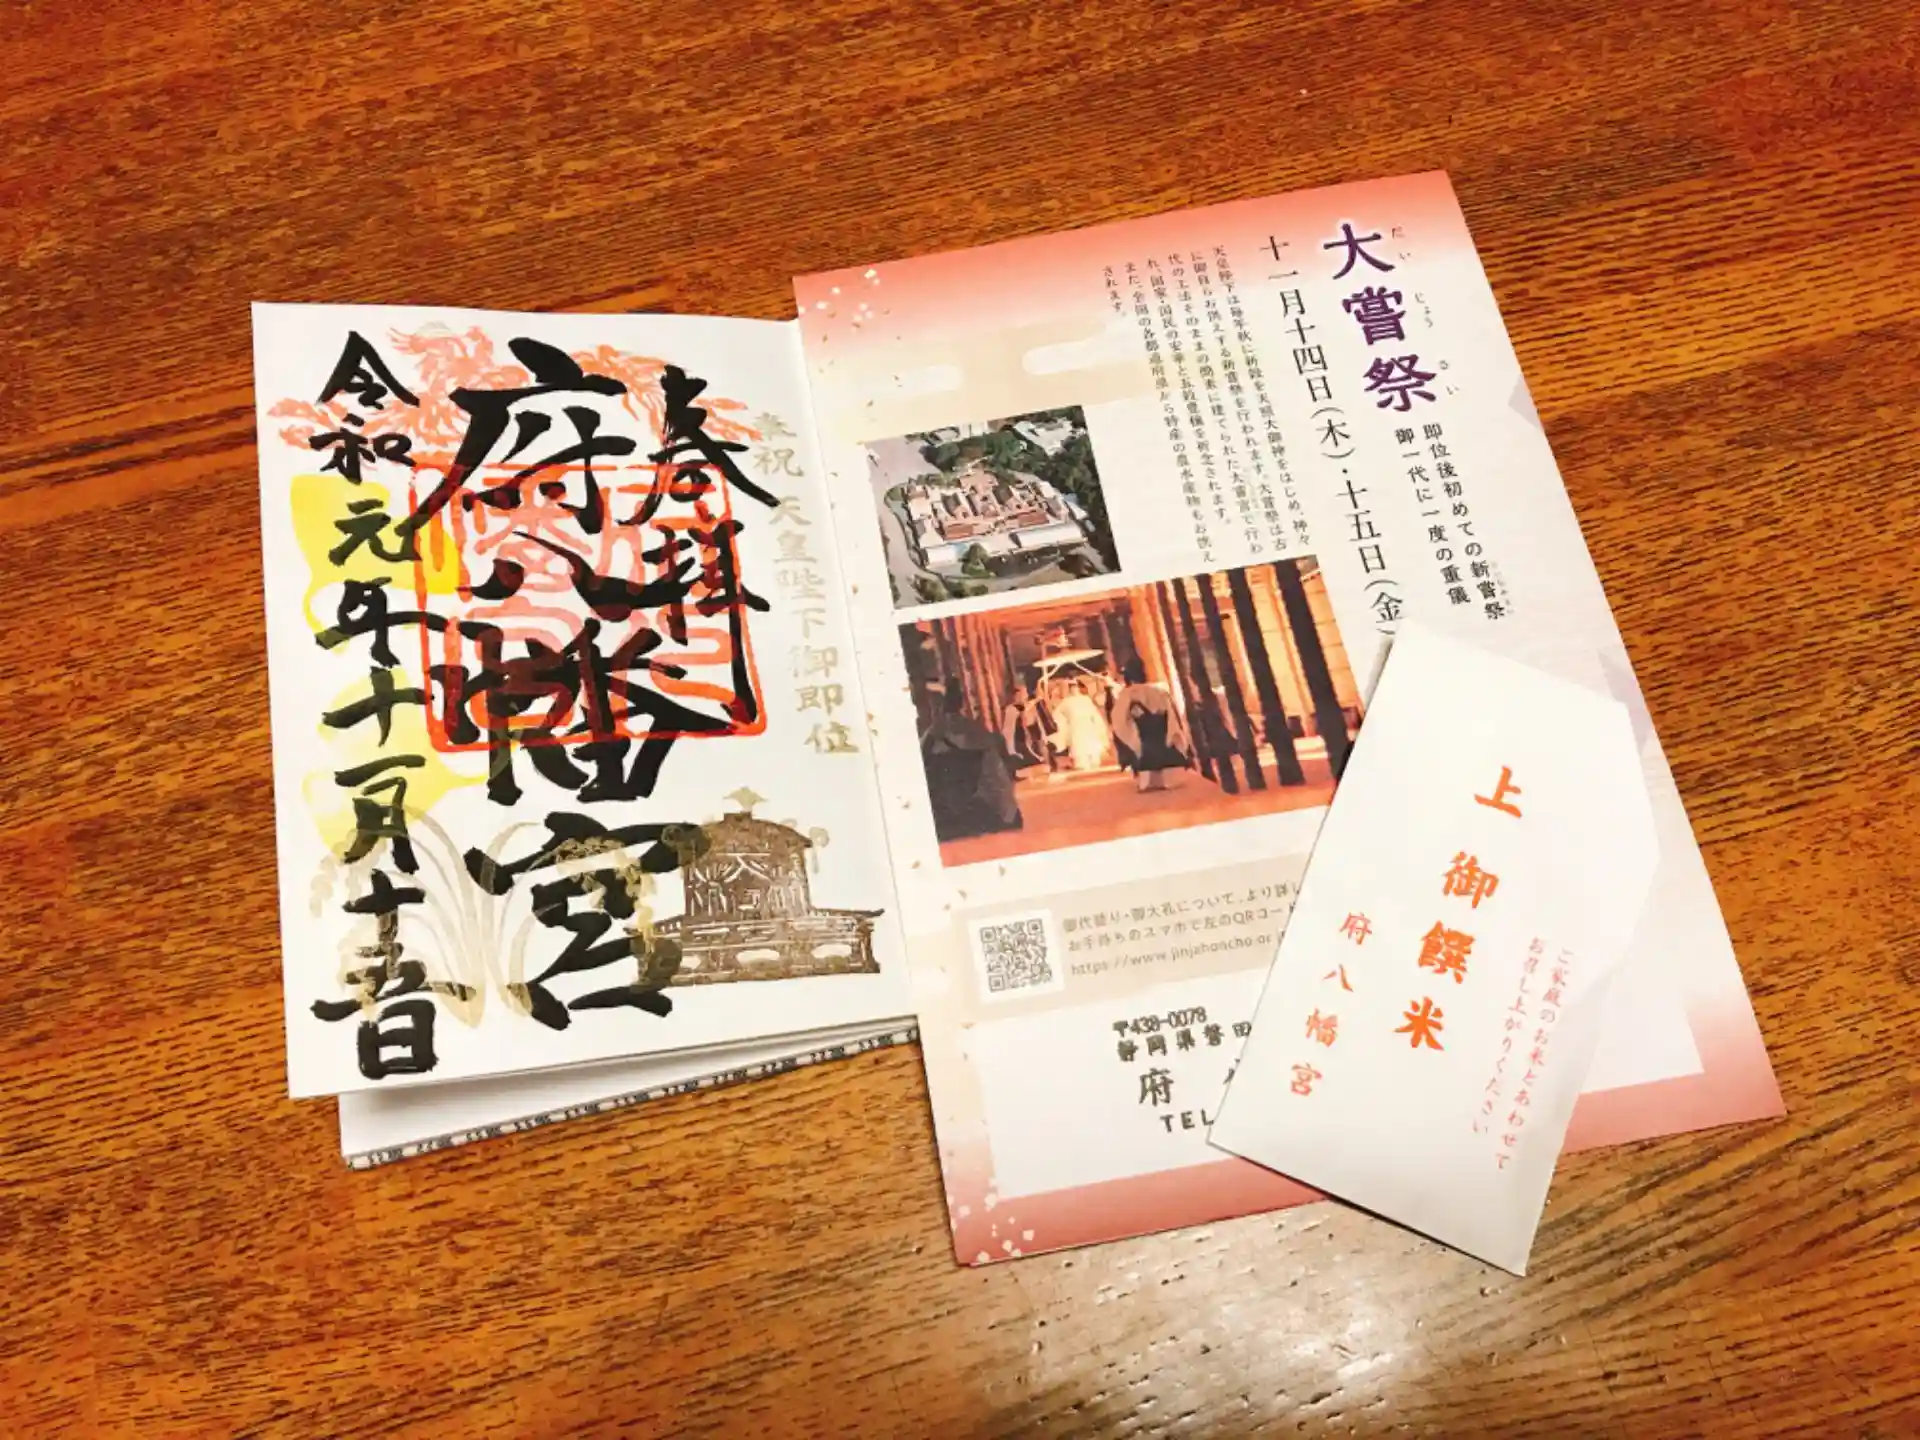 奉拝
府八幡宮
令和元年十一月十五日
奉祝 天皇陛下御即位
大嘗祭
だいじょうさい
即位後初めての新嘗祭
御一代に一度の重儀
十一月十四日(木)・十五日(金)
天皇陛下は毎年秋に新穀を天照大御神をはじめ、神々
に御自らお供えする新嘗祭を行われます。大嘗祭は古
代の工法そのままの簡素に建てられた大嘗宮で行わ
れ、国家・国民の安寧と五穀豊穣を祈念されます。
また、全国の各都道府県から特産の農水産物もお供え
されます。
御代替り・御大礼について、より詳し
お手持ちのスマホで左のQRコード
https://www.jinjahoncho.or.j
〒438-0078
静岡県磐田
府
TEL
上
御饌米
府八幡宮
ご家庭のお米とあわせて
お召し上がりください